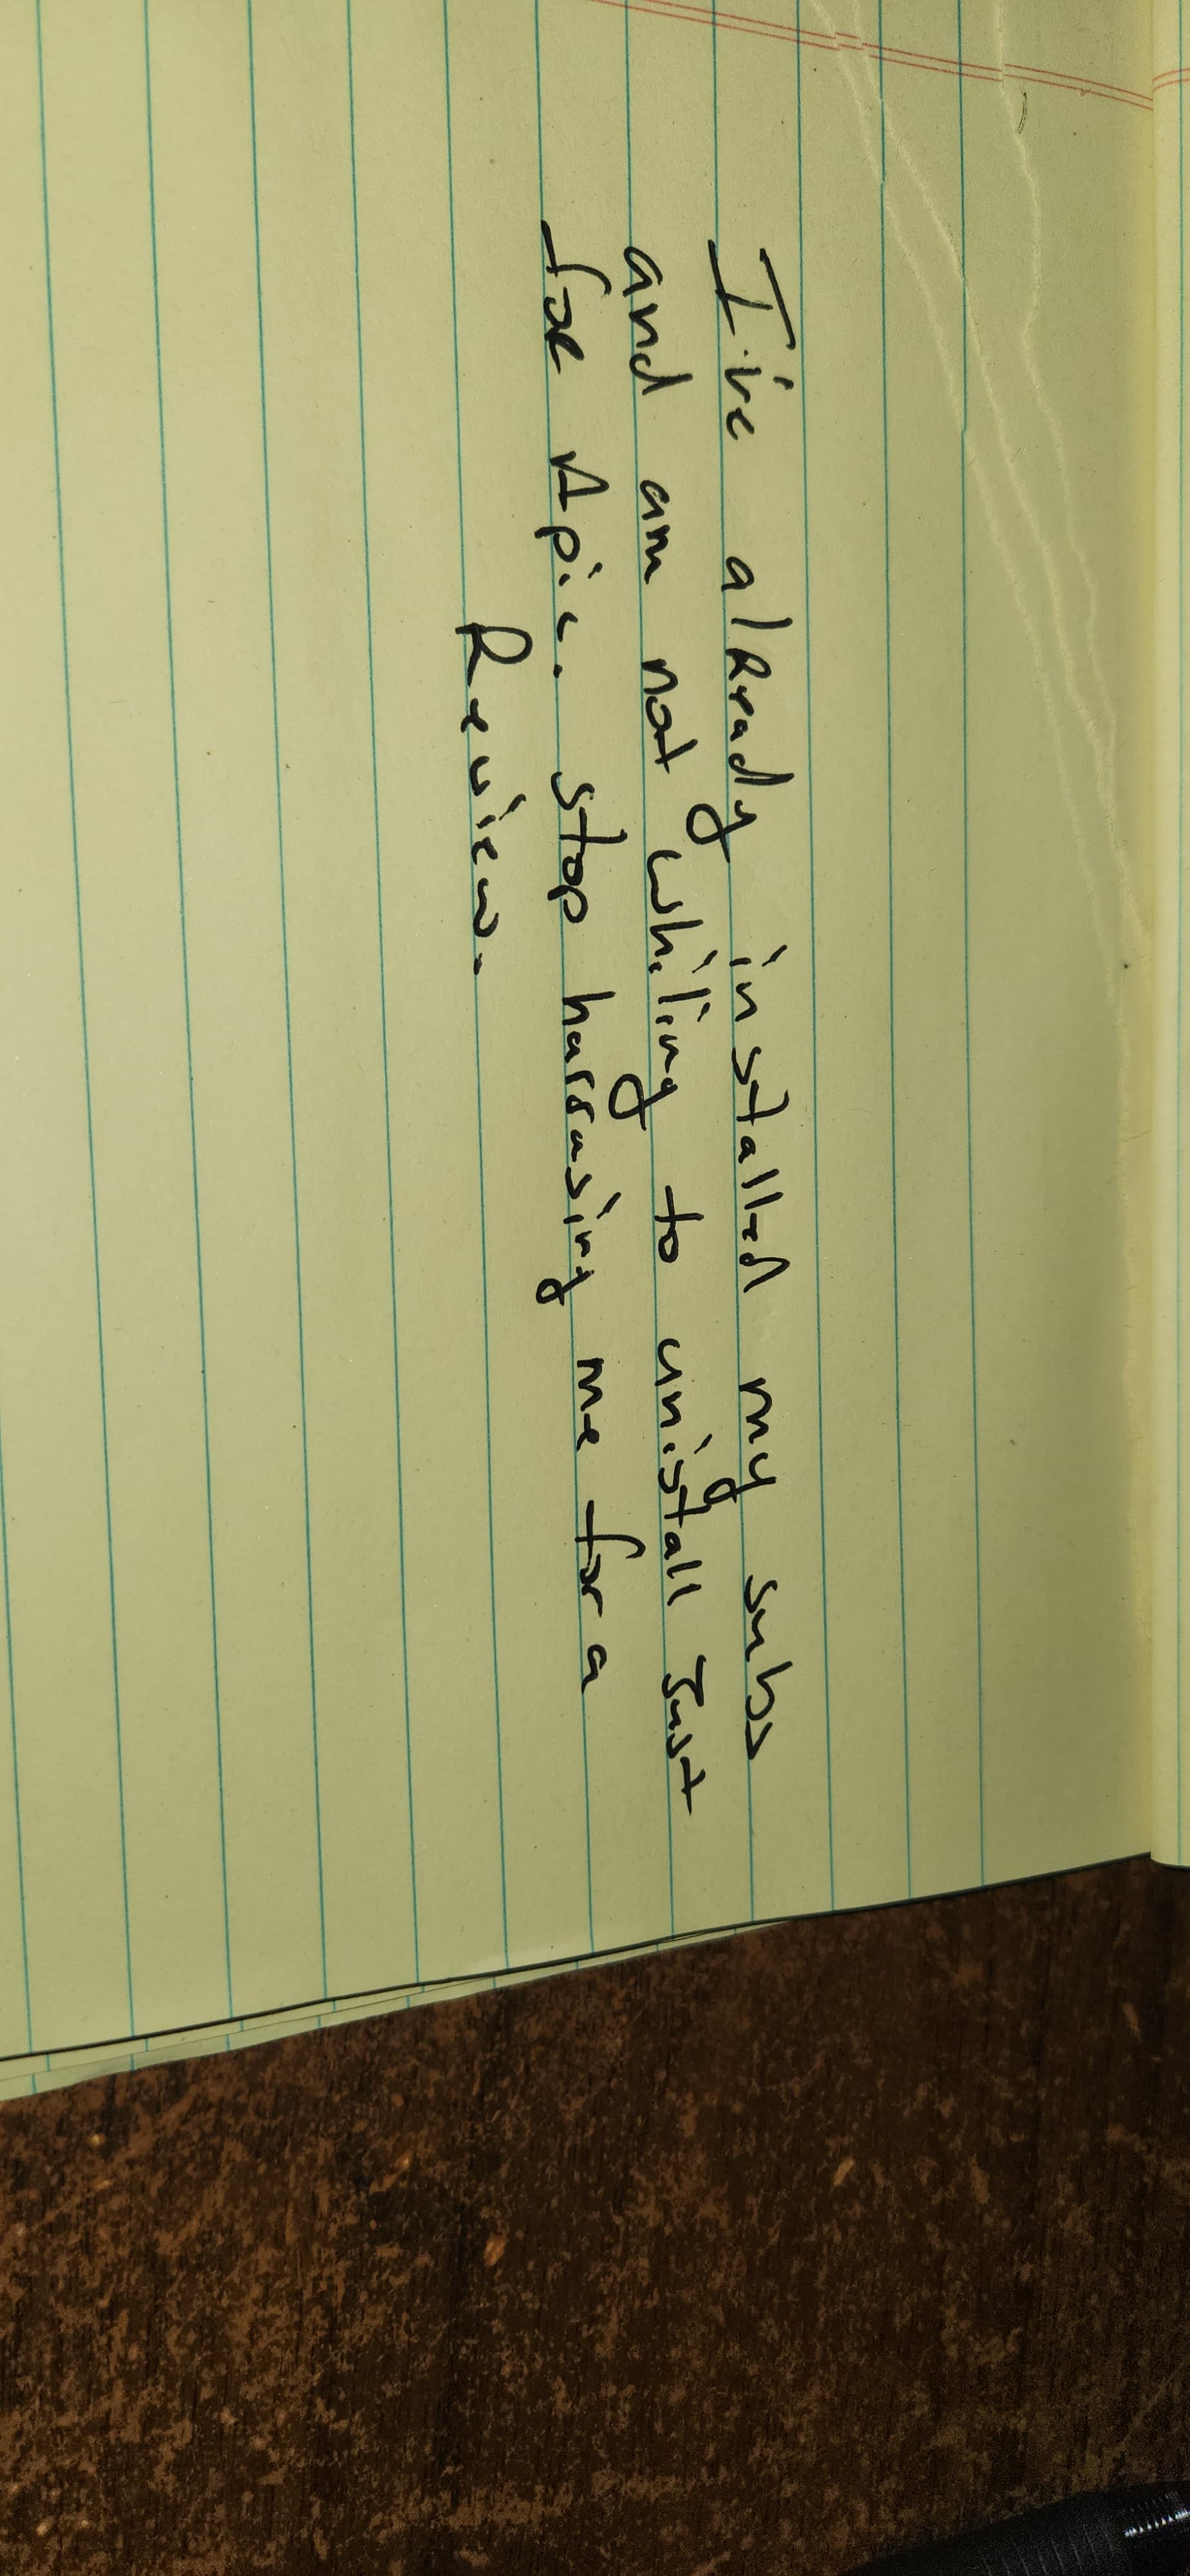 I've already installed my subs
and am not whiling to unistall Just
for A pic. stop harrasing me for a
Review.